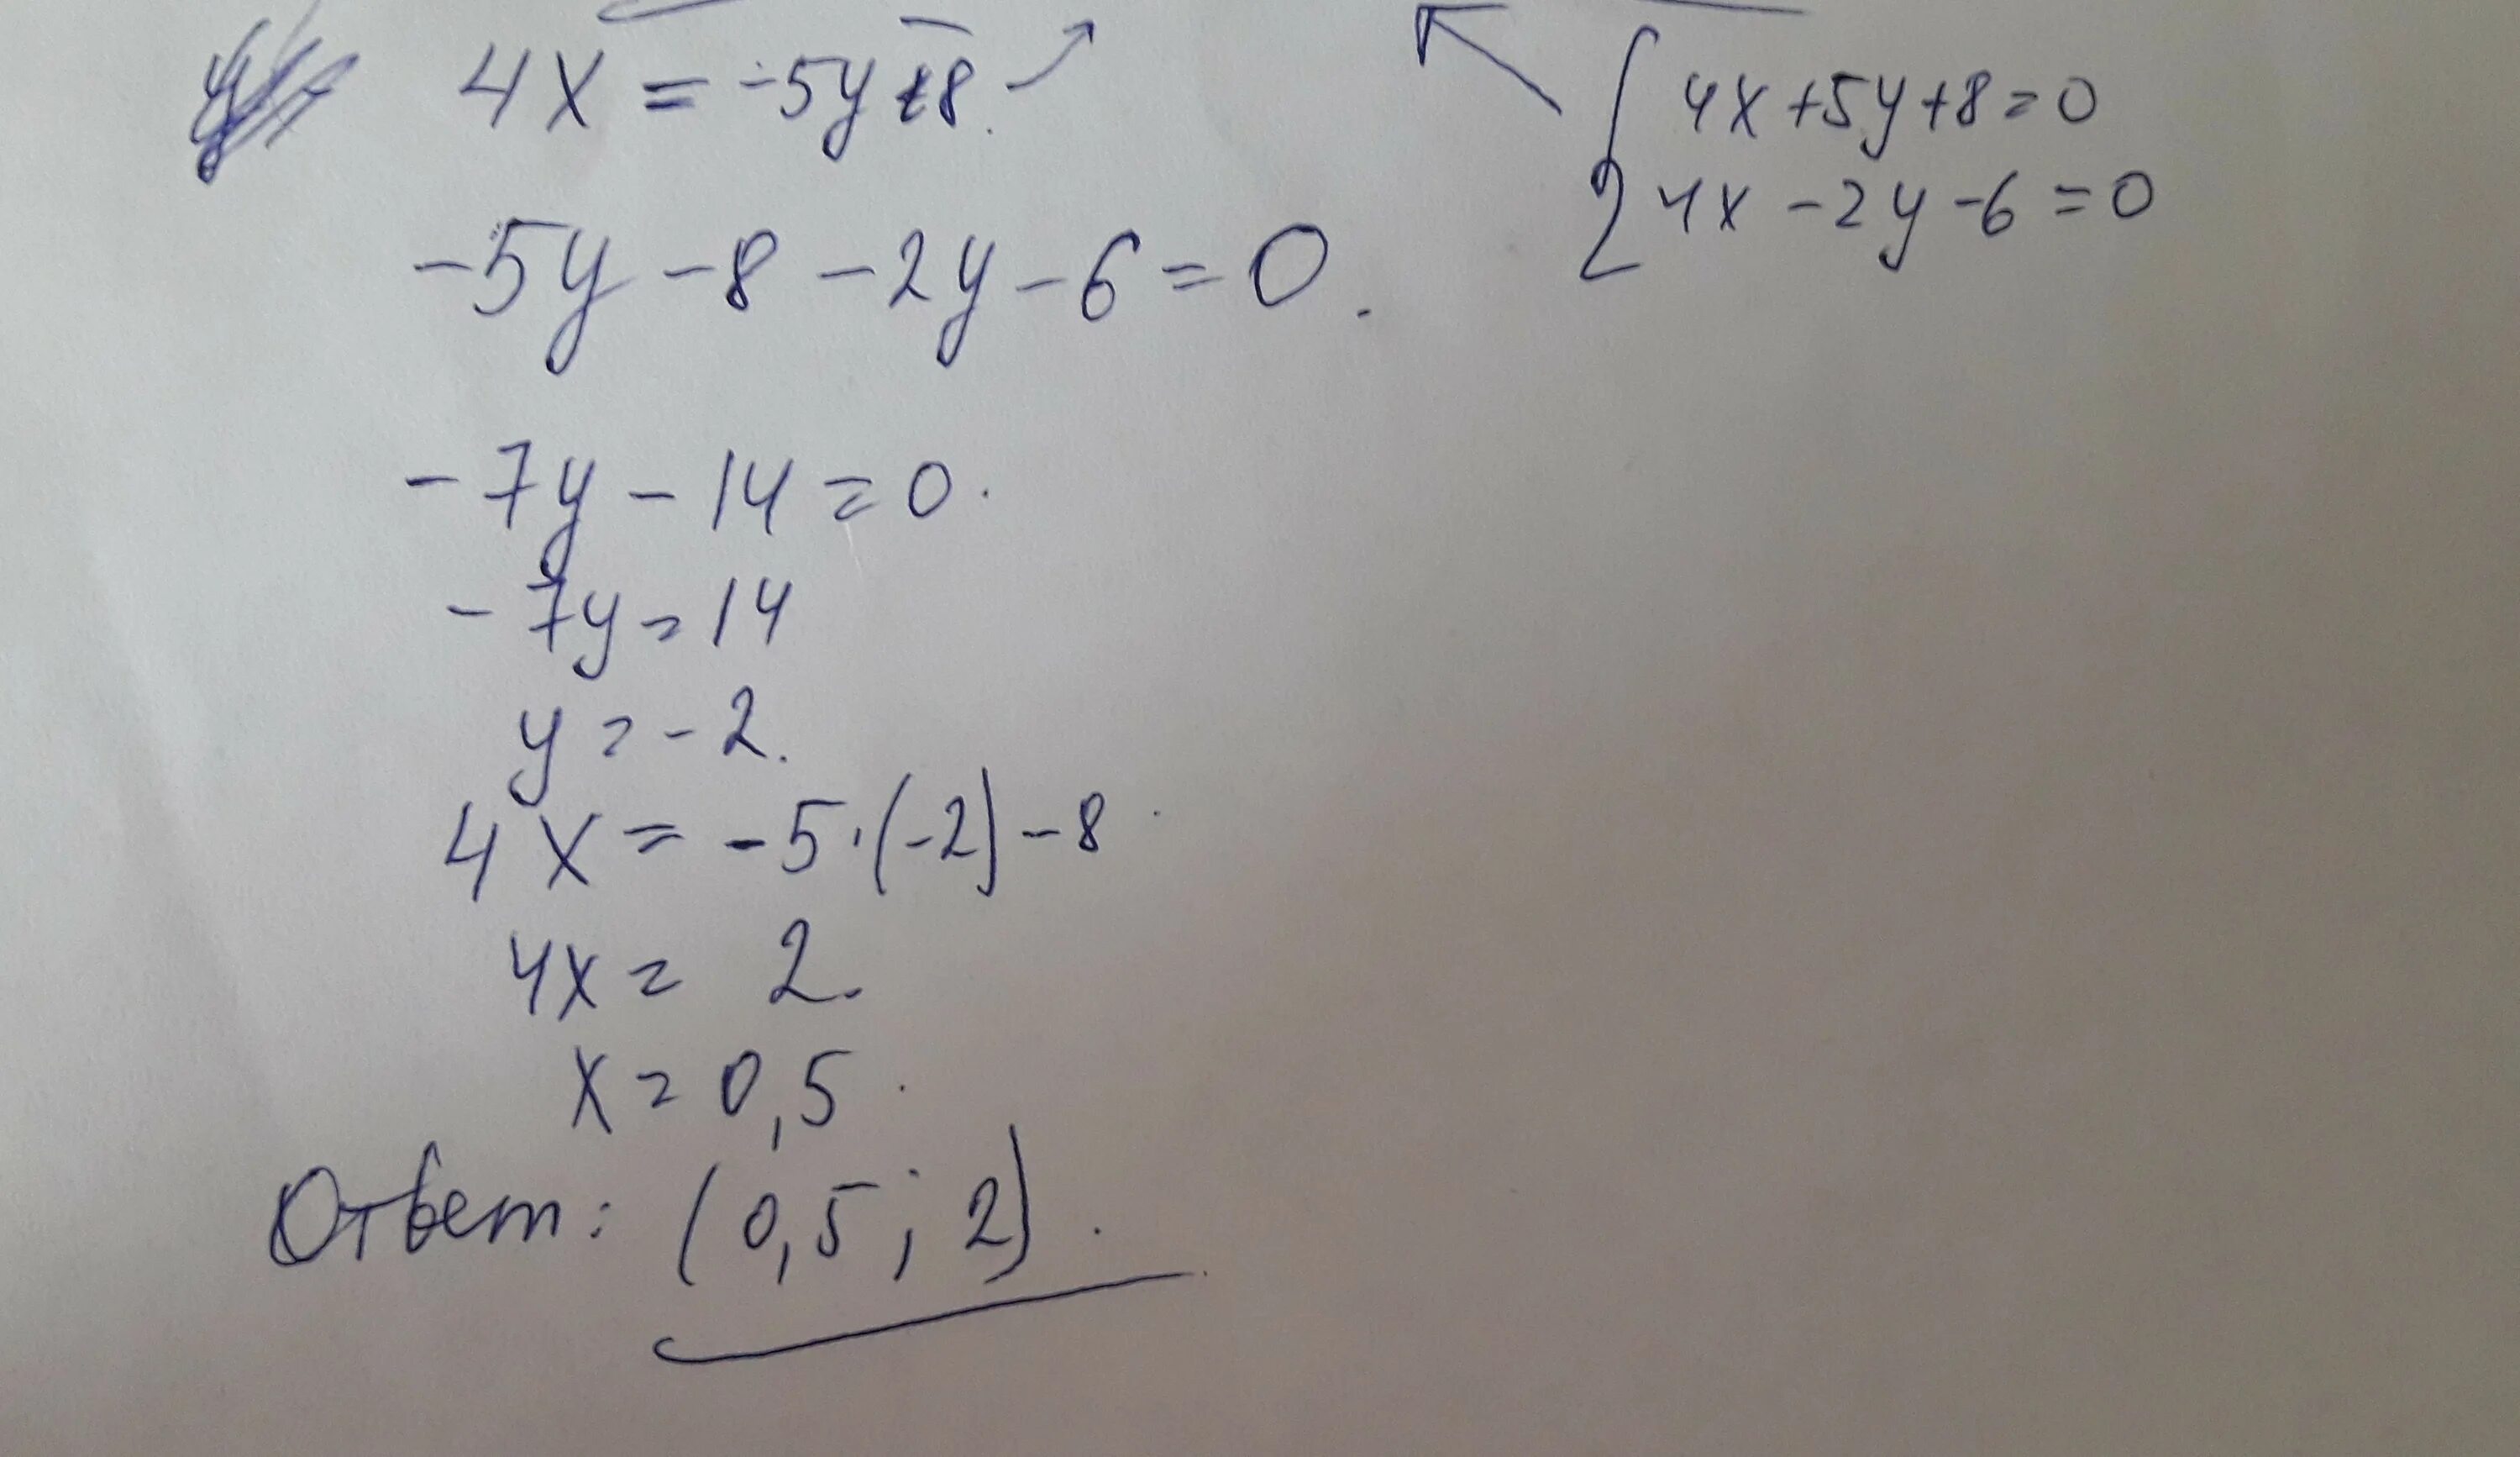 4x = -5y-8.
4x+5y+8=0
4x-2y-6=0
-5y-8-2y-6=0.
-7y-14=0.
-7y=14
y=-2.
4x=-5·(-2)-8
4x= 2.
x=0,5.
Ответ: (0,5; 2).